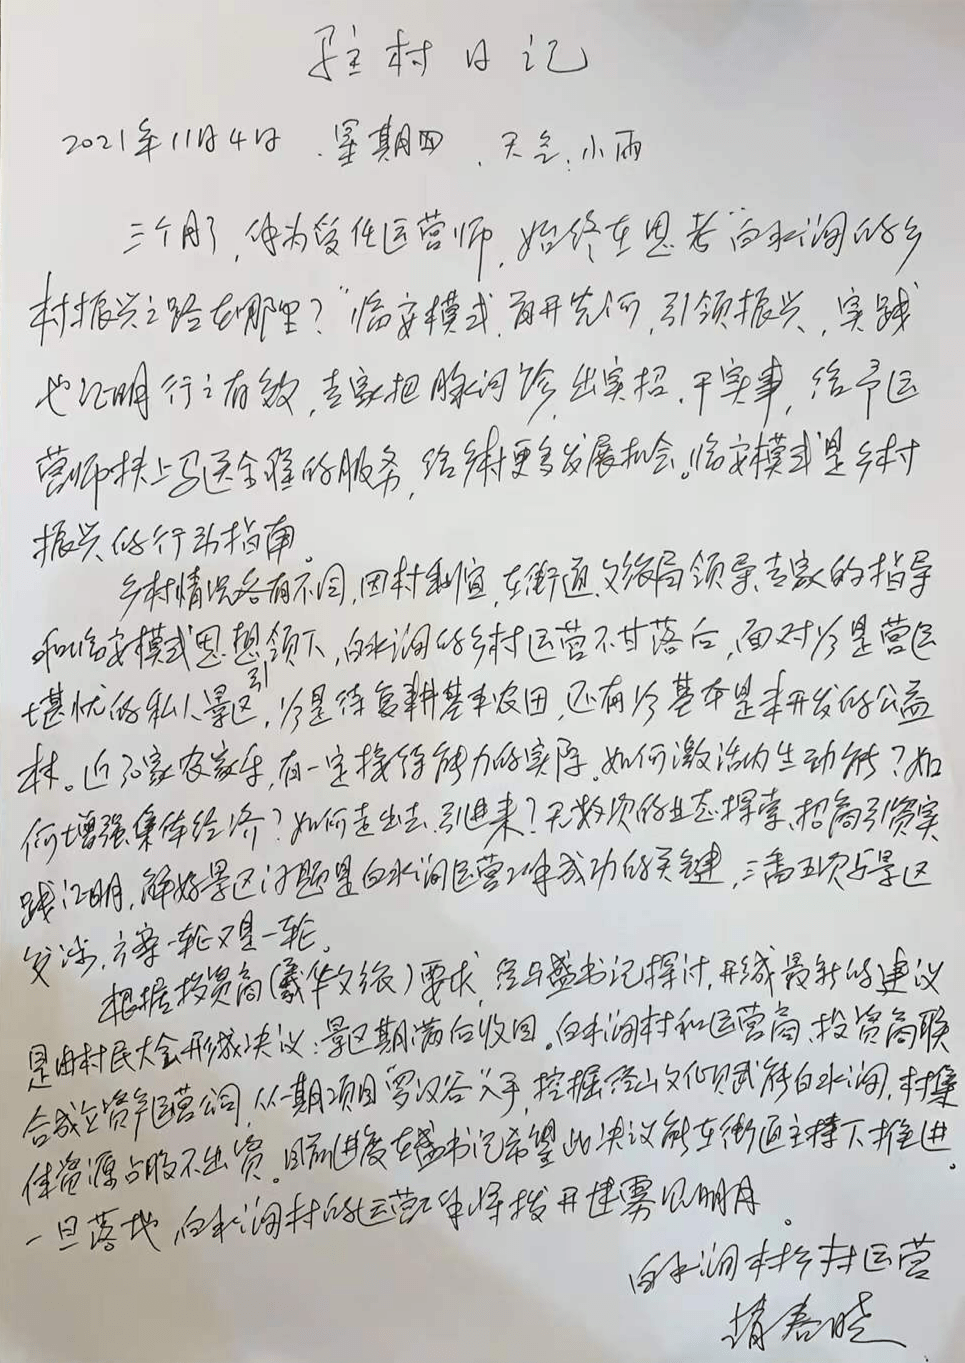 驻村日记
2021年11月4日、星期四、天气:小雨
三个月了,身为责任运营师,始终在思考“白水涧的乡
村振兴之路在哪里?”临安模式,首开先河,引领振兴,实践
也证明行之有效,专家把脉问诊,出实招、干实事,给予运
营师扶上马送全程的服务,给乡村更多发展机会。临安模式是乡村
振兴的行动指南。
乡村情况各有不同,因村制宜,在街道、文旅局领导、专家的指导
和临安模式思想引领下,白水涧的乡村运营不甘落后,面对的是营运
堪忧的私人景区,的是待复耕基本农田,还有的基本是未开发的公益
林。近30家农家乐,有一定接待能力的实际。如何激活内生动能?如
何增强集体经济?如何走出去、引进来?无数次的业态探索、招商引资实
践证明,解好景区问题是白水涧运营工作成功的关键,三番五次与景区
交涉,方案一轮又是一轮。
根据投资商(羲华文旅)要求,经与盛书记探讨,形成最新的建议
是由村民大会形成决议:景区期满后收回。白水涧村和运营商、投资商联
合成立资产运营公司,从一期项目“罗汉谷”入手,挖掘径山文化赋能白水涧,村集
体资源占股不出资。目前进度在盛书记希望此决议能在街道主持下推进。
一旦落地,白水涧村的运营工作将拨开迷雾见明月。
白水涧村乡村运营
春晓